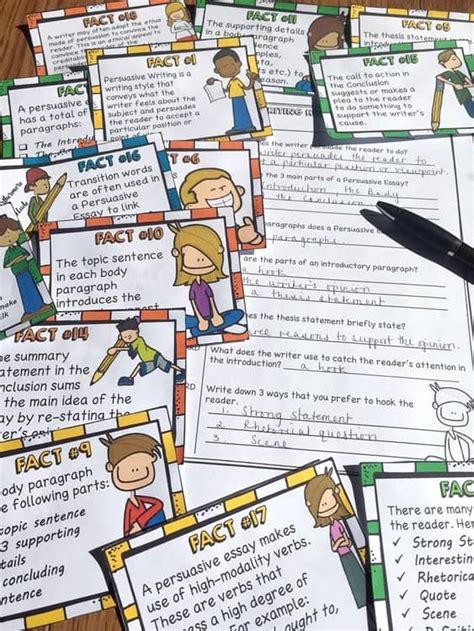 FACT #18
A writer may often adopt the ethos
mode of persuasion to convince the
reader. This is an ethical appeal to
FACT #11
The supporting details
in a body paragraph
etc.) to
FACT #5
The thesis statement
FACT #1
Persuasive Writing is a
writing style that
conveys what the
writer feels about the
subject and persuades
the reader to accept a
particular position or
FACT #15
The call to action in
the Conclusion
suggests or makes a
plea to the reader to
do something to
support the writer's
cause.
A persuasive
has a total of
paragraphs:
FACT #16
Transition words
are often used in
a Persuasive
Essay to link
FACT #6
FACT #10
The topic sentence
in each body
paragraph
introduces the
FACT #14
summary
statement in the
conclusion sums
the main idea of the
by re-stating the
FACT #9
body paragraph
following parts:
topic sentence
3 supporting
details
concluding
sentence
FACT #17
A persuasive essay makes
use of high-modality verbs.
These are verbs that
a high degree of
For example:
ought to,
There are many
the reader. Her
✓ Strong St
✓ Interestin
✓ Rhetorica
✓ Quote
✓ Scene
the writer persuades the reader to do?
particular position or viewpoint.
the 3 main parts of a Persuasive Essay?
introduction, the body
the conclusion
paragraphs does a Persuasive
paragraphs
are the parts of an introductory paragraph?
a hook
the writer's opinion
a thesis statement
does the thesis statement briefly state?
three reasons to support the opinion.
What does the writer use to catch the reader's attention
in the introduction? a hook
Write down 3 ways that you prefer to hook the
reader.
1. Strong statement
2. Rhetorical question
3. Scene